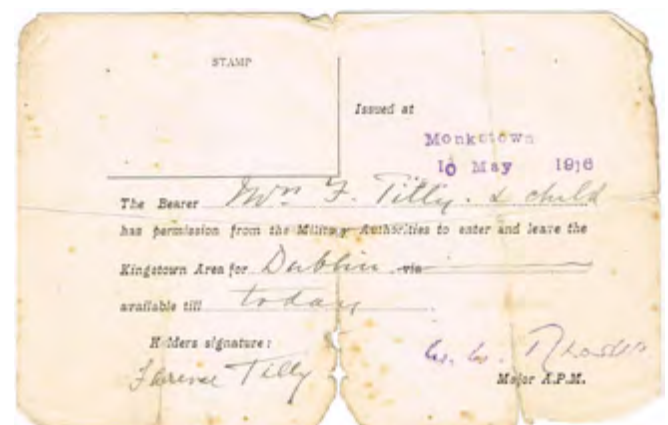 STAMP
Issued at
Monkstown
10 May 1916
The Bearer Mrs F. Tilly. & child
has permission from the Military Authorities to enter and leave the
Kingstown Area for Dublin via
available till today
Holders signature:
Florence Tilly
Major A.P.M.